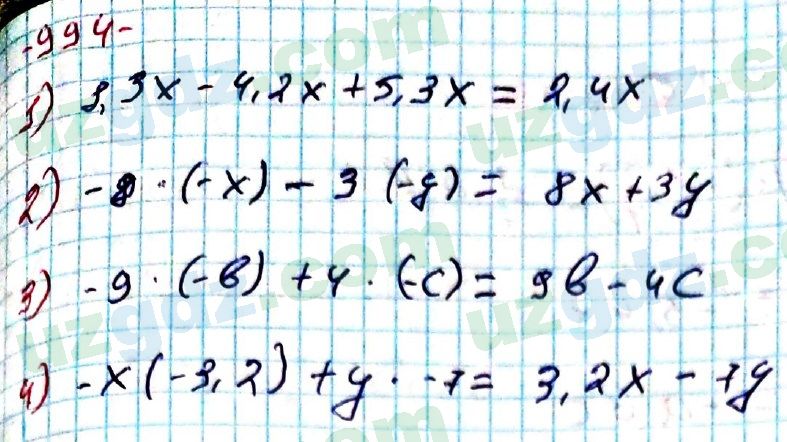 -994-
1) 1,3x - 4,2x + 5,3x = 2,4x
2) -8 · (-x) - 3 (-y) = 8x + 3y
3) -9 · (-b) + 4 · (-c) = 9b - 4c
4) -x (-3,2) + y · -7 = 3,2x - 7y
uzgdz.com
uzgdz.com
uzgdz.com
uzgdz.com